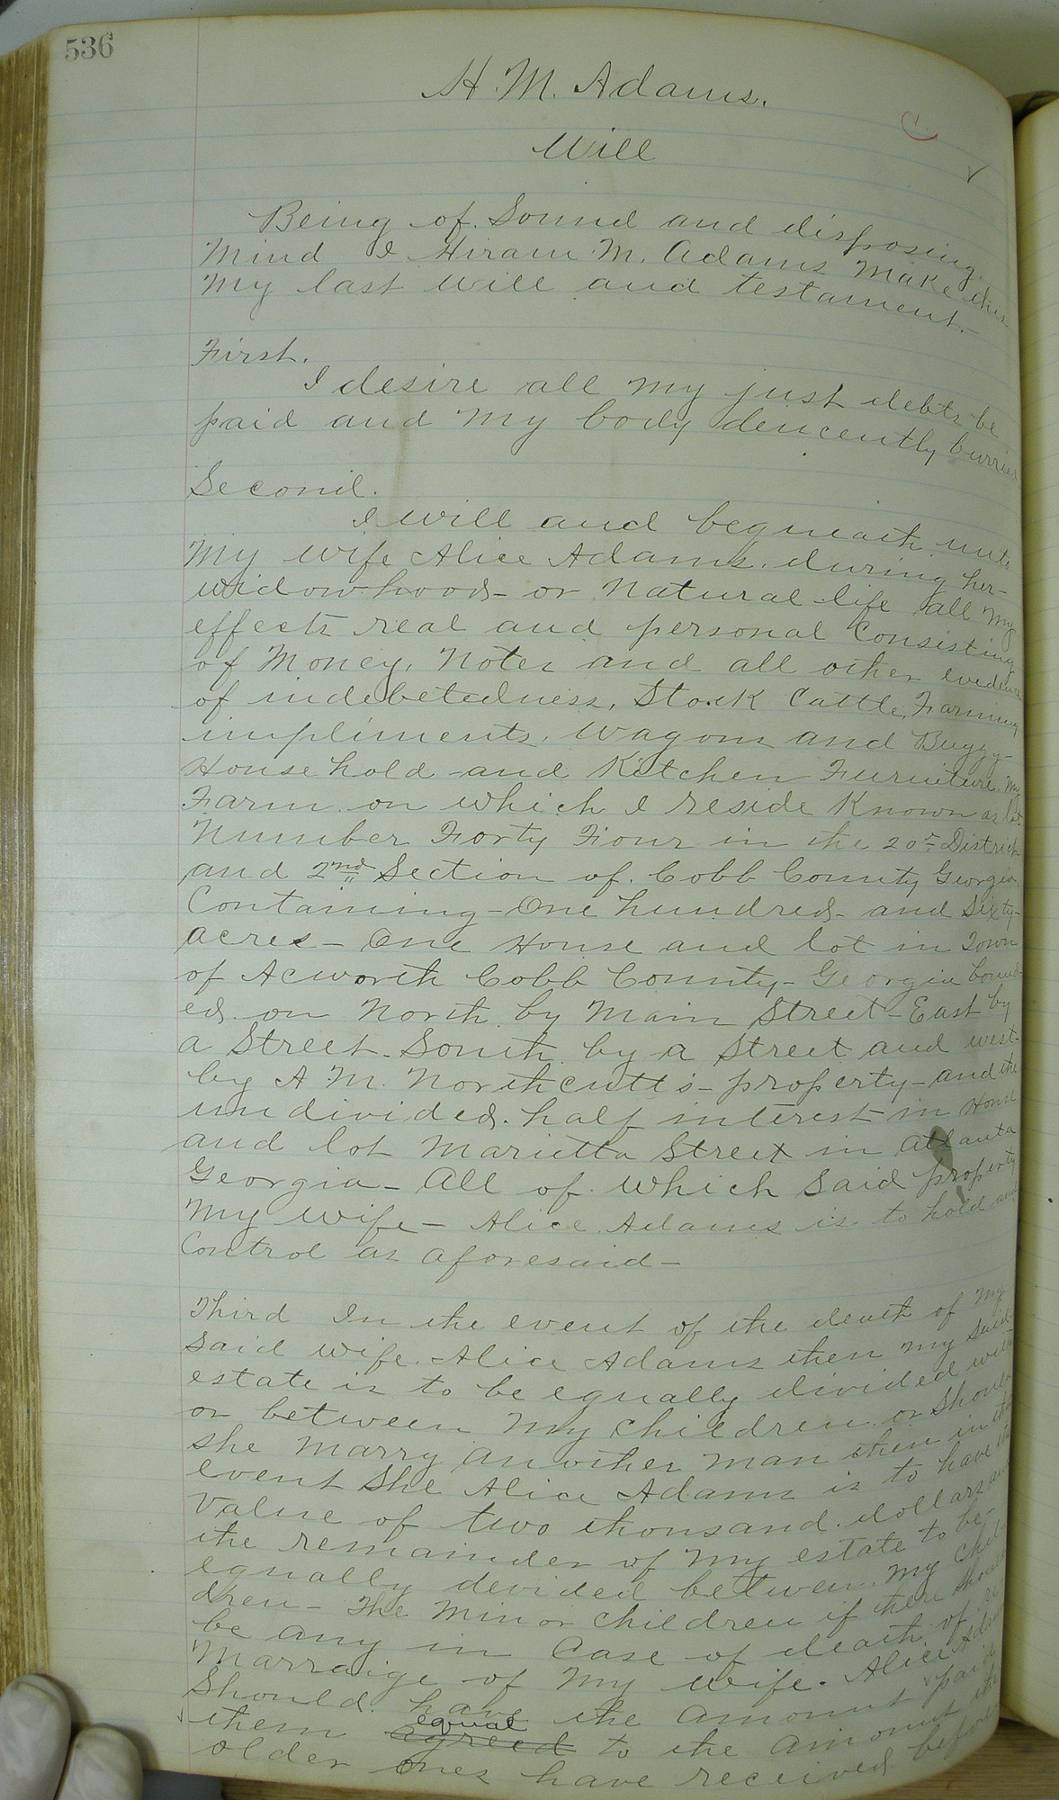 536
H. M. Adams.
Will
Being of Sound and disposing
Mind I Hiram M. Adams Make this
My last will and testament.
First.
I desire all my just debts be
paid and My body dencently burried
Second.
I will and bequeath unto
My wife Alice Adams. during her
widowhood or Natural life all My
effects real and personal Consisting
of Money, Notes and all other evidence
of indebetedness, Stock Cattle, Farming
impliments, Wagons and Buggy
House hold and Kitchen Furniture. My
Farm on which I reside Known as lot
Number Forty Four in the 20th District
and 2nd Section of Cobb County Georgia
Containing One hundred and Sixty
acres - One House and lot in Town
of Acworth Cobb County - Georgia bound
ed on North by Main Street - East by
a Street. South by a Street and west
by A M. Northcutt's - property - and the
undivided half interest in House
and lot Marietta Street in Atlanta
Georgia - All of which Said property
My wife - Alice Adams is to hold and
Control as aforesaid -
Third In the event of the death of My
Said wife Alice Adams then my Said
estate is to be equally divided with
or between My children or Should
she Marry another man then in that
event She Alice Adams is to have the
Value of two thousand dollars and
the remainder of My estate to be
equally devided between My Chil
dren - The Minor children if there should
be any in Case of death of or
Marraige of My wife. Alice Adams
Should have the amount paid
them agreed equal to the amount the
older Ones have received before